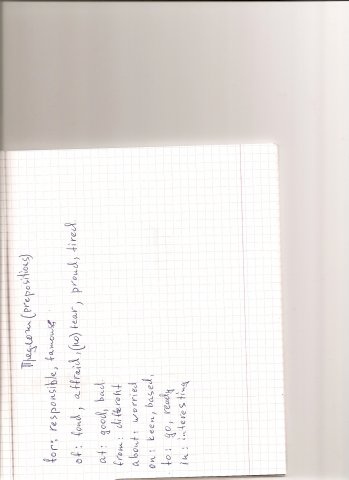 (prepositions)
for: responsible, famous
of: fond, affraid, (no) fear, proud, tired
at: good, bad
from: different
about: worried
on: keen, based,
to: go, ready
in: interesting